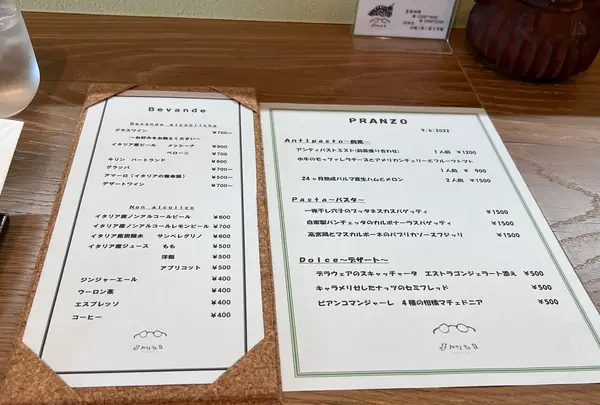 Bevande
Bevande alcooliche
グラスワイン ¥700~
~お好みをお教えください~
イタリア産ビール メッシーナ ¥900
ペローニ ¥700
キリン ハートランド ¥600
グラッパ ¥700~
アマーロ(イタリアの薬草酒) ¥700~
デザートワイン ¥700~
Non alcolico
イタリア産ノンアルコールビール ¥600
イタリア産ノンアルコールレモンビール ¥700
イタリア産炭酸水 サンペレグリノ ¥600
イタリア産ジュース もも ¥500
洋梨 ¥500
アプリコット ¥500
ジンジャーエール ¥400
ウーロン茶 ¥400
エスプレッソ ¥400
コーヒー ¥400
PRANZO
9/6/2022
Antipasto~前菜~
アンティパストミスト(前菜盛り合わせ) 1人前 ¥1200
水牛のモッツァレラチーズとアメリカンチェリーとフルーツトマト
1人前 ¥ 900
24ヶ月熟成パルマ産生ハムとメロン 2人前 ¥1500
Pasta~パスタ~
一夜干し穴子のプッタネスカスパゲッティ ¥1500
自家製パンチェッタのカルボナーラスパゲッティ ¥1500
高宮鶏とマスカルポーネのパプリカソースフジッリ ¥1500
Dolce~デザート~
デラウェアのスキャッチャータ エストラゴンジェラート添え ¥500
キャラメリゼしたナッツのセミフレッド ¥500
ビアンコマンジャーレ 4種の柑橘マチェドニア ¥500